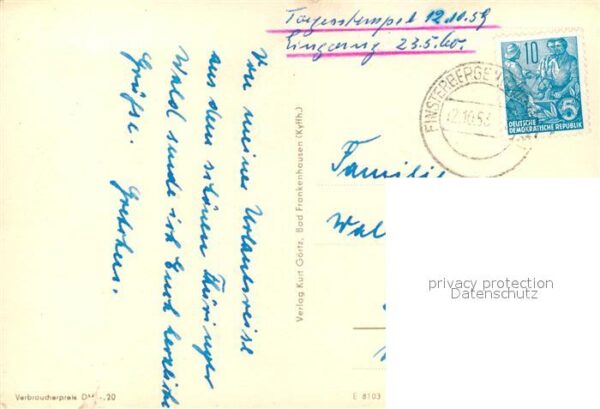 Tagesstempel 12.10.59
Eingang 23.5.60.
10
5
DEUTSCHE
DEMOKRATISCHE REPUBLIK
FINSTERBERGEN
12.10.53
Von meiner Urlaubsreise
aus dem schönen Thüringer
Wald sende ich Euch herzliche
Grüße.
Verlag Kurt Görtz, Bad Frankenhausen (Kyffh.)
Familie
Wal
privacy protection
Datenschutz
Verbraucherpreis DM -.20
E 8103